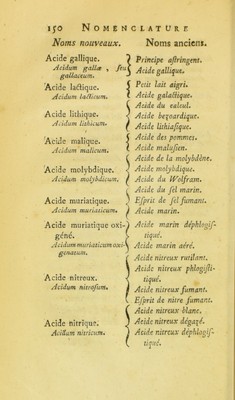 150 NOMENCLATURE
Noms nouveaux. Noms anciens.
Acide gallique. Principe aſtringent.
Acidum gallæ, ſeu Acide gallique.
gallaceum.
Acide lactique. Petit lait aigri.
Acidum lacticum. Acide galactique.
Acide du calcul.
Acide lithique. Acide bezoardique.
Acidum lithicum. Acide lithiaſique.
Acide malique. Acide des pommes.
Acidum malicum. Acide maluſien.
Acide de la molybdène.
Acide molybdique. Acide molybdique.
Acidum molybdicum. Acide du Wolfram.
Acide du ſel marin.
Acide muriatique. Eſprit de ſel fumant.
Acidum muriaticum. Acide marin.
Acide muriatique oxi- Acide marin déphlogiſ-
géné. tiqué.
Acidum muriaticum oxi- Acide marin aéré.
genatum.
Acide nitreux rutilant.
Acide nitreux phlogiſti-
Acide nitreux. tiqué.
Acidum nitroſum. Acide nitreux fumant.
Eſprit de nitre fumant.
Acide nitreux blanc.
Acide nitrique. Acide nitreux dégazé.
Acidum nitricum. Acide nitreux déphlogiſ-
tiqué.